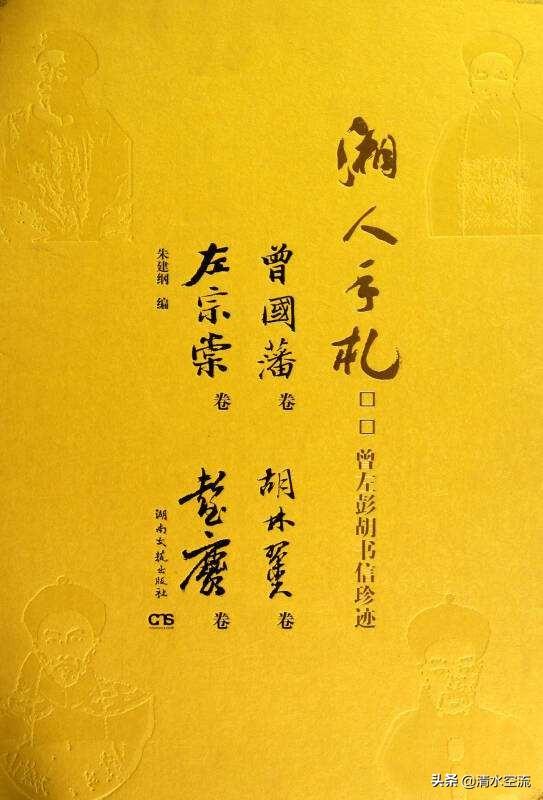 湘人手札
□□曾左彭胡书信珍迹
曾國藩卷
胡林翼卷
左宗棠卷
彭玉麐卷
朱建纲 编
湖南文艺出版社
头条 @清水空流